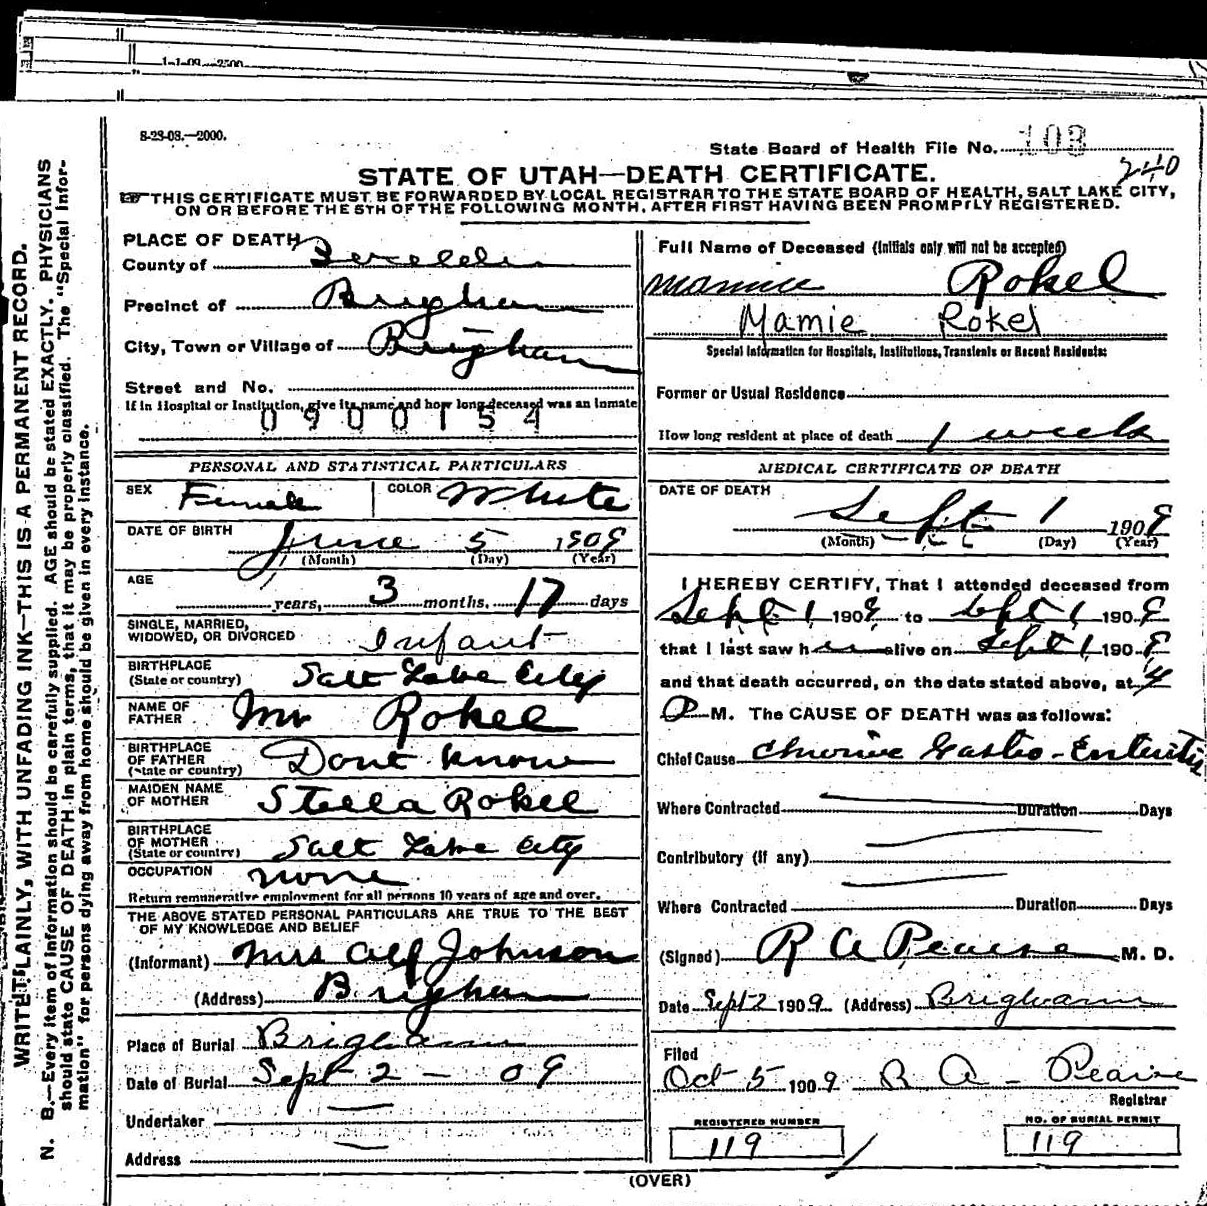 1-1-09—2500.
8-23-08.—2000.
State Board of Health File No. 103
240
STATE OF UTAH—DEATH CERTIFICATE.
THIS CERTIFICATE MUST BE FORWARDED BY LOCAL REGISTRAR TO THE STATE BOARD OF HEALTH, SALT LAKE CITY,
ON OR BEFORE THE 5TH OF THE FOLLOWING MONTH, AFTER FIRST HAVING BEEN PROMPTLY REGISTERED.
WRITE PLAINLY, WITH UNFADING INK—THIS IS A PERMANENT RECORD.
N. B.—Every item of information should be carefully supplied. AGE should be stated EXACTLY. PHYSICIANS
should state CAUSE OF DEATH in plain terms, that it may be properly classified. The "Special Infor-
mation" for persons dying away from home should be given in every instance.
PLACE OF DEATH
County of
Precinct of Brigham
City, Town or Village of Brigham
Street and No.
If in Hospital or Institution, give its name and how long deceased was an inmate
0900154
PERSONAL AND STATISTICAL PARTICULARS
SEX Female COLOR White
DATE OF BIRTH June 5 1909
(Month) (Day) (Year)
AGE years, 3 months, 17 days
SINGLE, MARRIED,
WIDOWED, OR DIVORCED Infant
BIRTHPLACE
(State or country) Salt Lake City
NAME OF
FATHER Mr Rokel
BIRTHPLACE
OF FATHER
(State or country) Dont know
MAIDEN NAME
OF MOTHER Stella Rokel
BIRTHPLACE
OF MOTHER
(State or country) Salt Lake City
OCCUPATION none
Return remunerative employment for all persons 10 years of age and over.
THE ABOVE STATED PERSONAL PARTICULARS ARE TRUE TO THE BEST
OF MY KNOWLEDGE AND BELIEF
(Informant) Mrs Alf Johnson
(Address) Brigham
Place of Burial Brigham
Date of Burial Sept 2 - 09
Undertaker
Address
Full Name of Deceased (Initials only will not be accepted)
Mamie Rokel
Mamie Rokel
Special Information for Hospitals, Institutions, Transients or Recent Residents:
Former or Usual Residence
How long resident at place of death 1 week
MEDICAL CERTIFICATE OF DEATH
DATE OF DEATH
Sept 1 1909
(Month) (Day) (Year)
I HEREBY CERTIFY, That I attended deceased from
Sept 1 1909 to Sept 1 1909
that I last saw her alive on Sept 1 1909
and that death occurred, on the date stated above, at 4
P M. The CAUSE OF DEATH was as follows:
Chief Cause Chronic Gastro-Enteritis
Where Contracted Duration Days
Contributory (if any)
Where Contracted Duration Days
(Signed) R A Pearse M. D.
Date Sept 2 1909 (Address) Brigham
Filed
Oct 5 1909 R A Pearse
Registrar
REGISTERED NUMBER
119
NO. OF BURIAL PERMIT
119
(OVER)